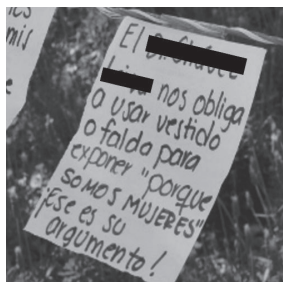 mis
El
nos obliga
a usar vestido
o falda para
exponer "porque
SOMOS MUJERES"
¡Ese es su
argumento!